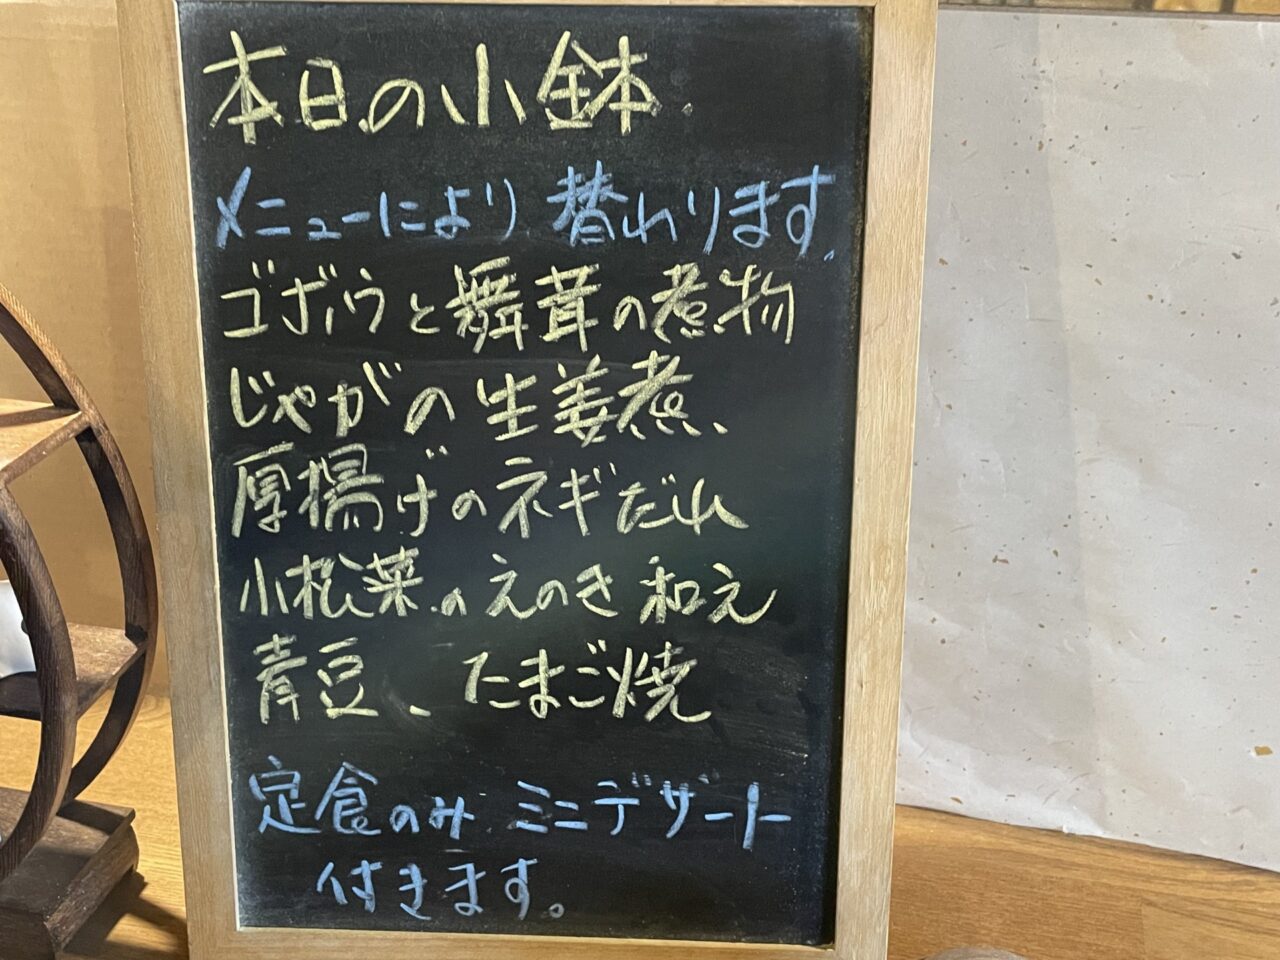 本日の小鉢
メニューにより 替わります。
ゴボウと舞茸の煮物
じゃがの生姜煮、
厚揚げのネギだれ
小松菜のえのき和え
青豆、たまご焼
定食のみ ミニデザート
付きます。